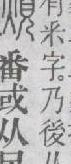 有米字乃後
番或从